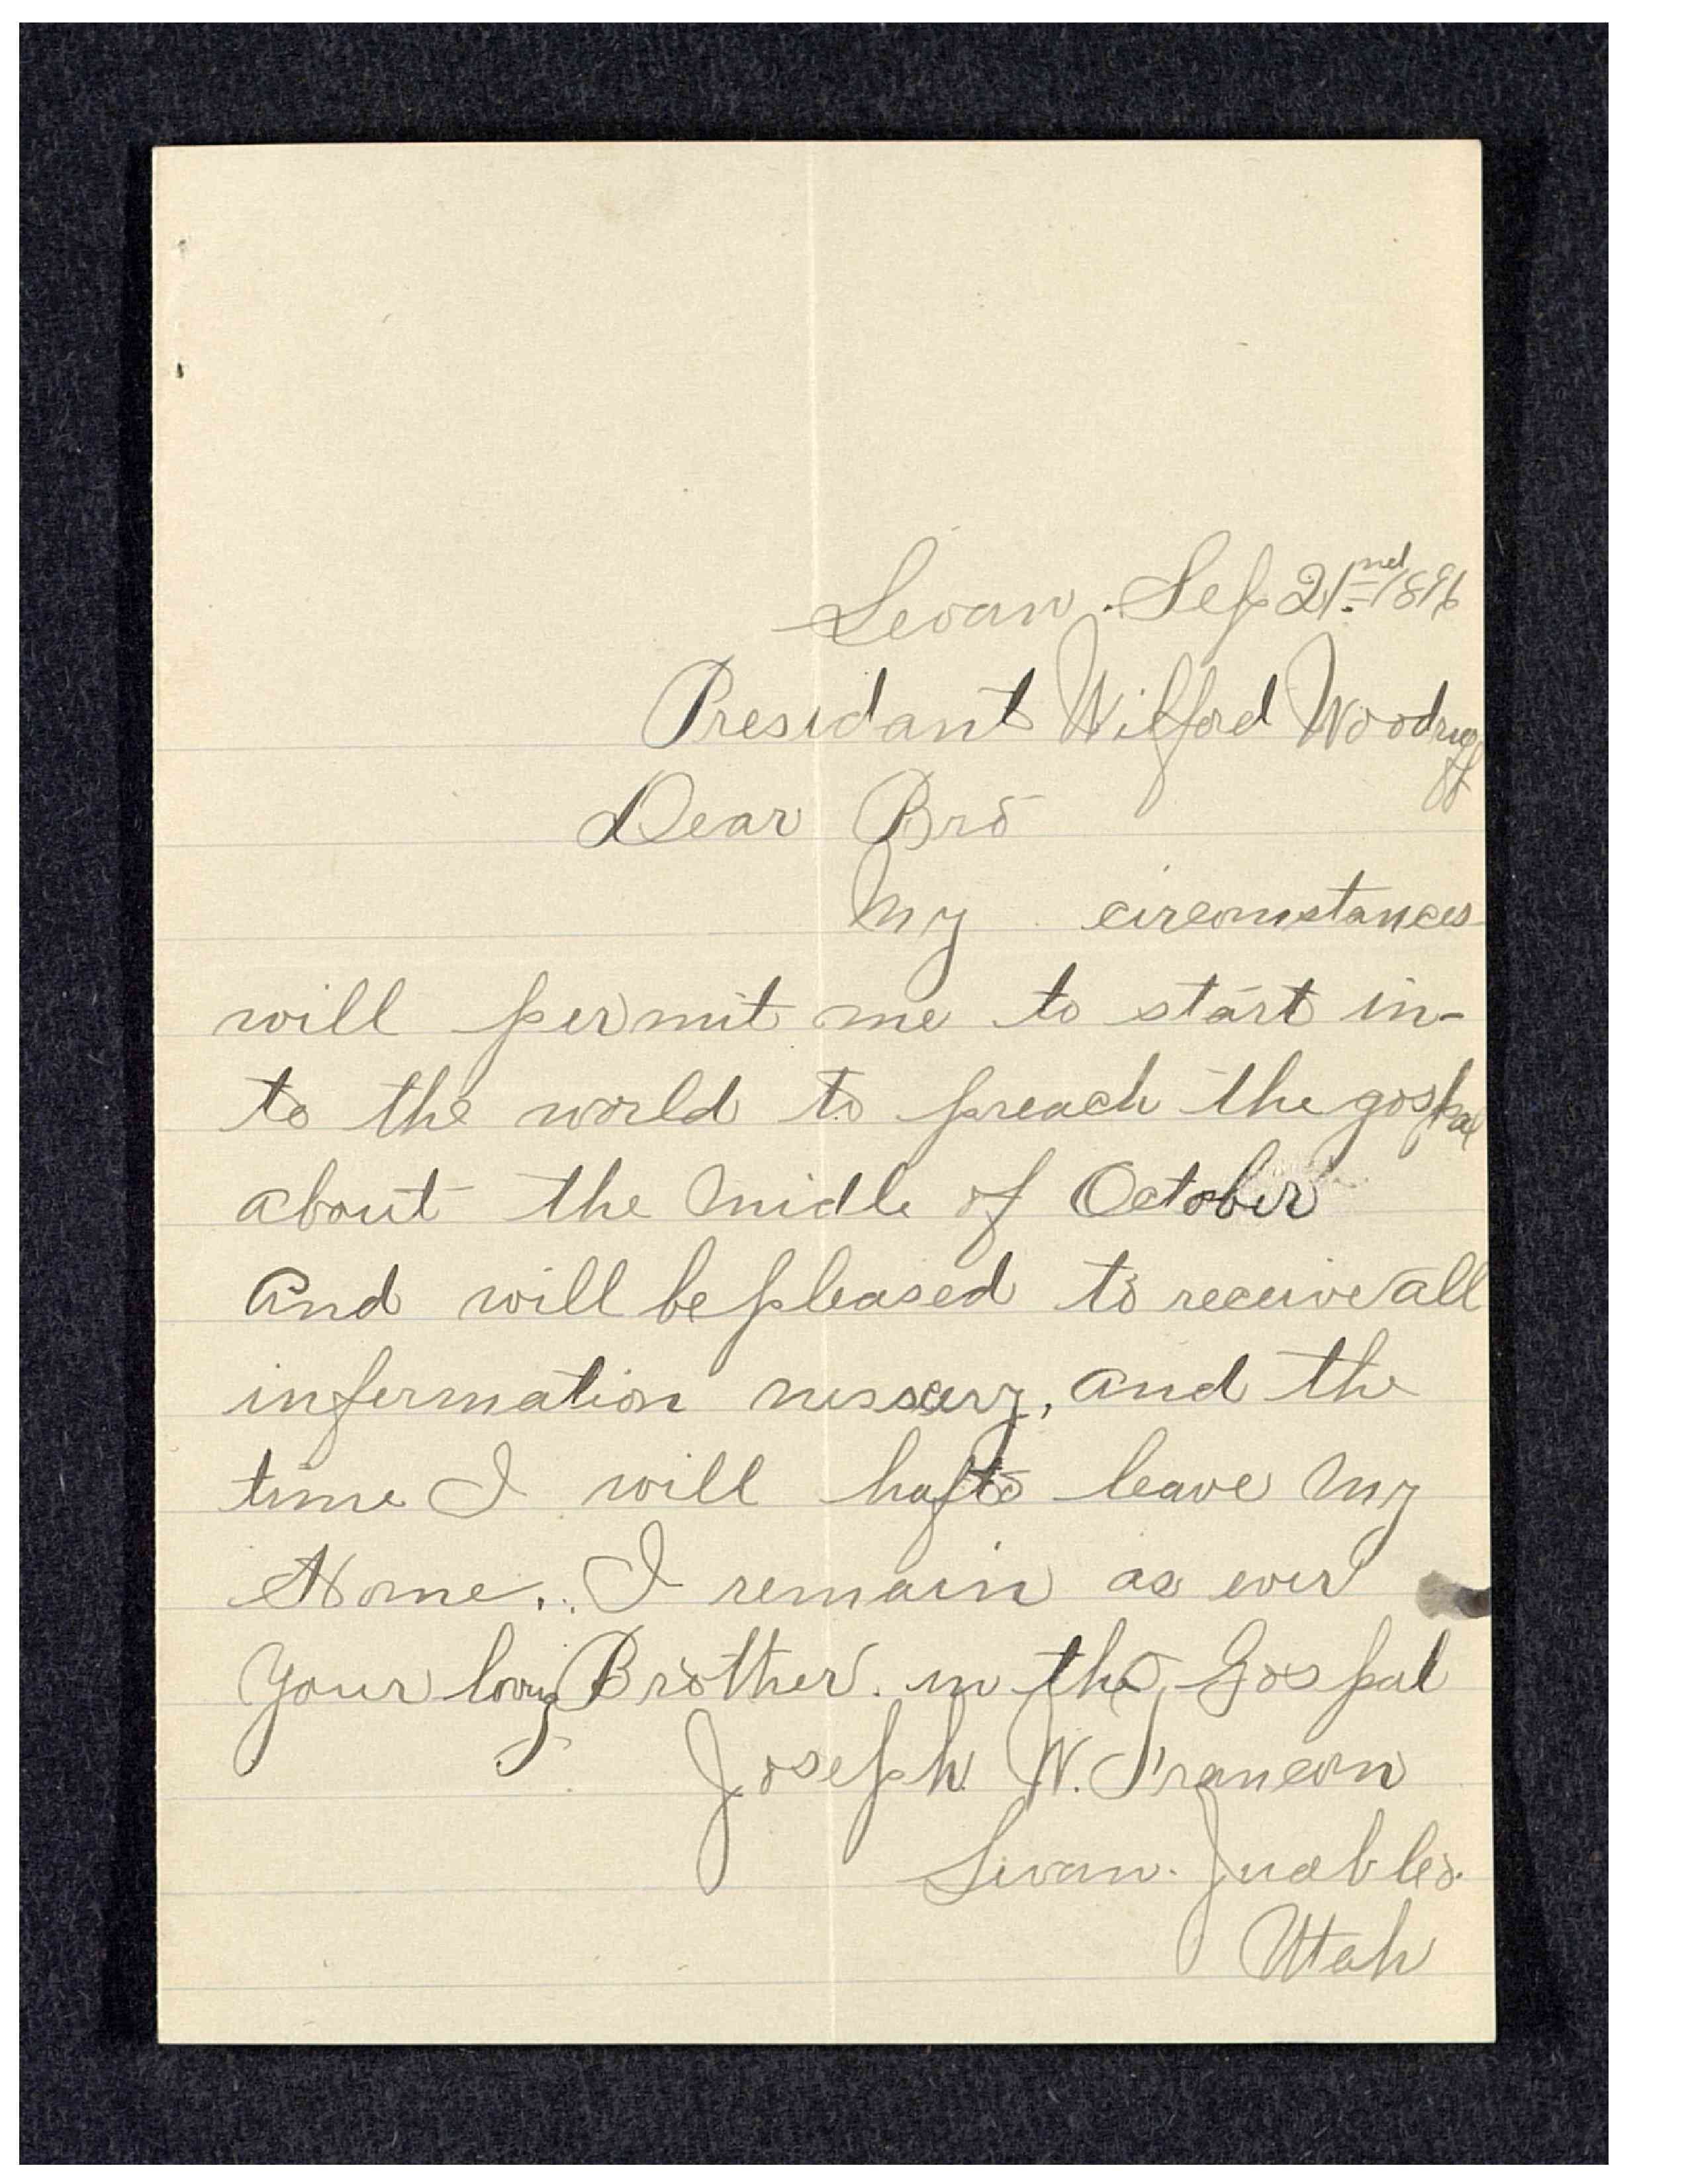 Levan. Sep 21nd 1896
Presidant Wilford Woodruff
Dear Bro
My circomstances
will permit me to start in-
to the world to preach the gospal
about the midle of October
and will be pleased to receive all
information nessery, and the
time I will hafto leave my
Home. I remain as ever
Your loving Brother. in the Gospal
Joseph W. Francom
Levan. Juab Co.
Utah